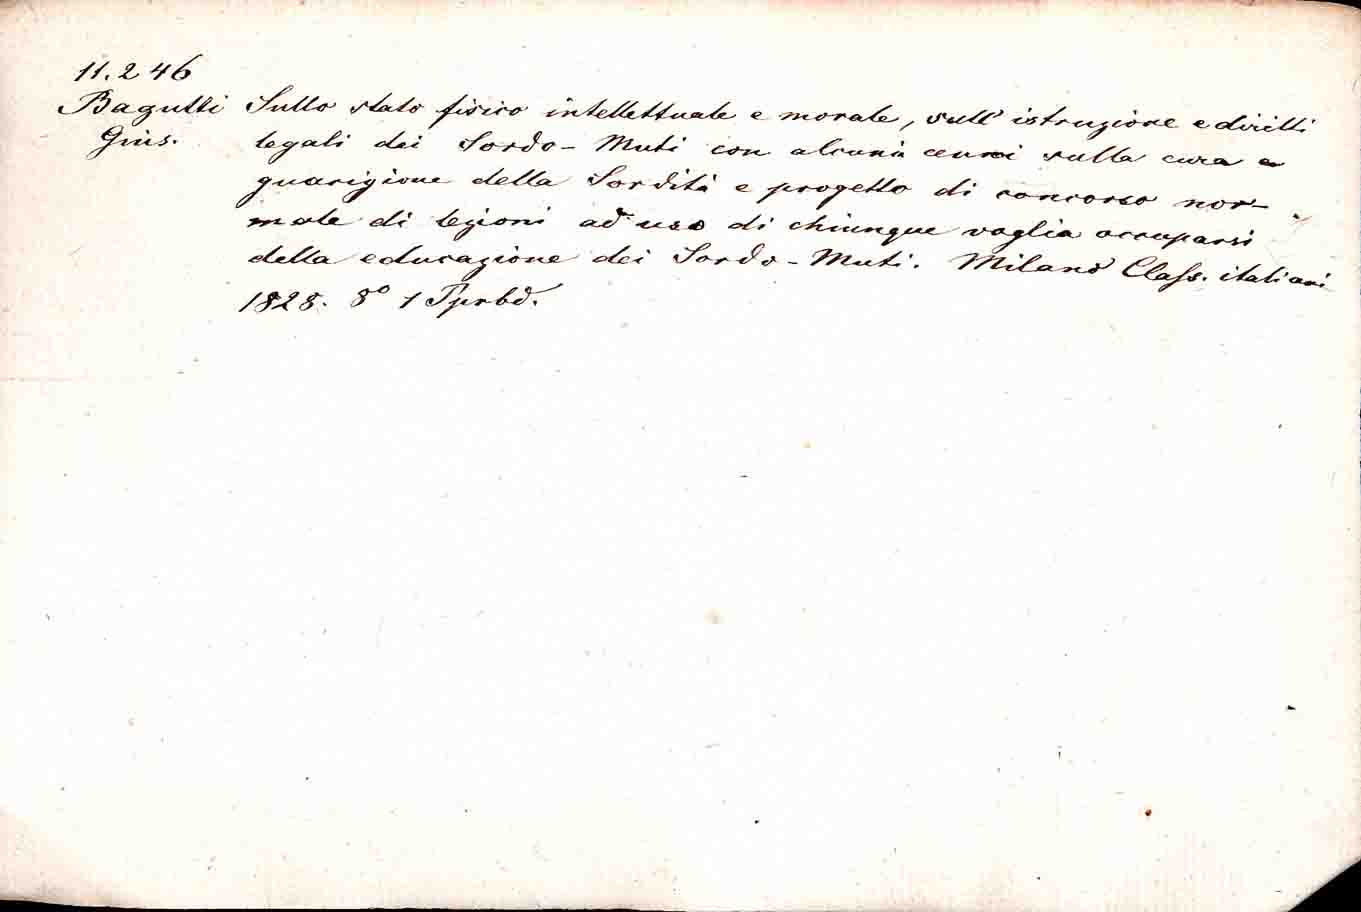 11.246
Bagutti Sullo stato fisico intellettuale e morale, sull' istruzione e diritti
Gius. legali dei Sordo-Muti con alcuni cenni sulla cura e
guarigione della Sordità e progetto di concorso nor-
male di lezioni ad uso di chiunque voglia occuparsi
della educazione dei Sordo-Muti. Milano Class. italiani
1828. 8° 1 Pprbd.